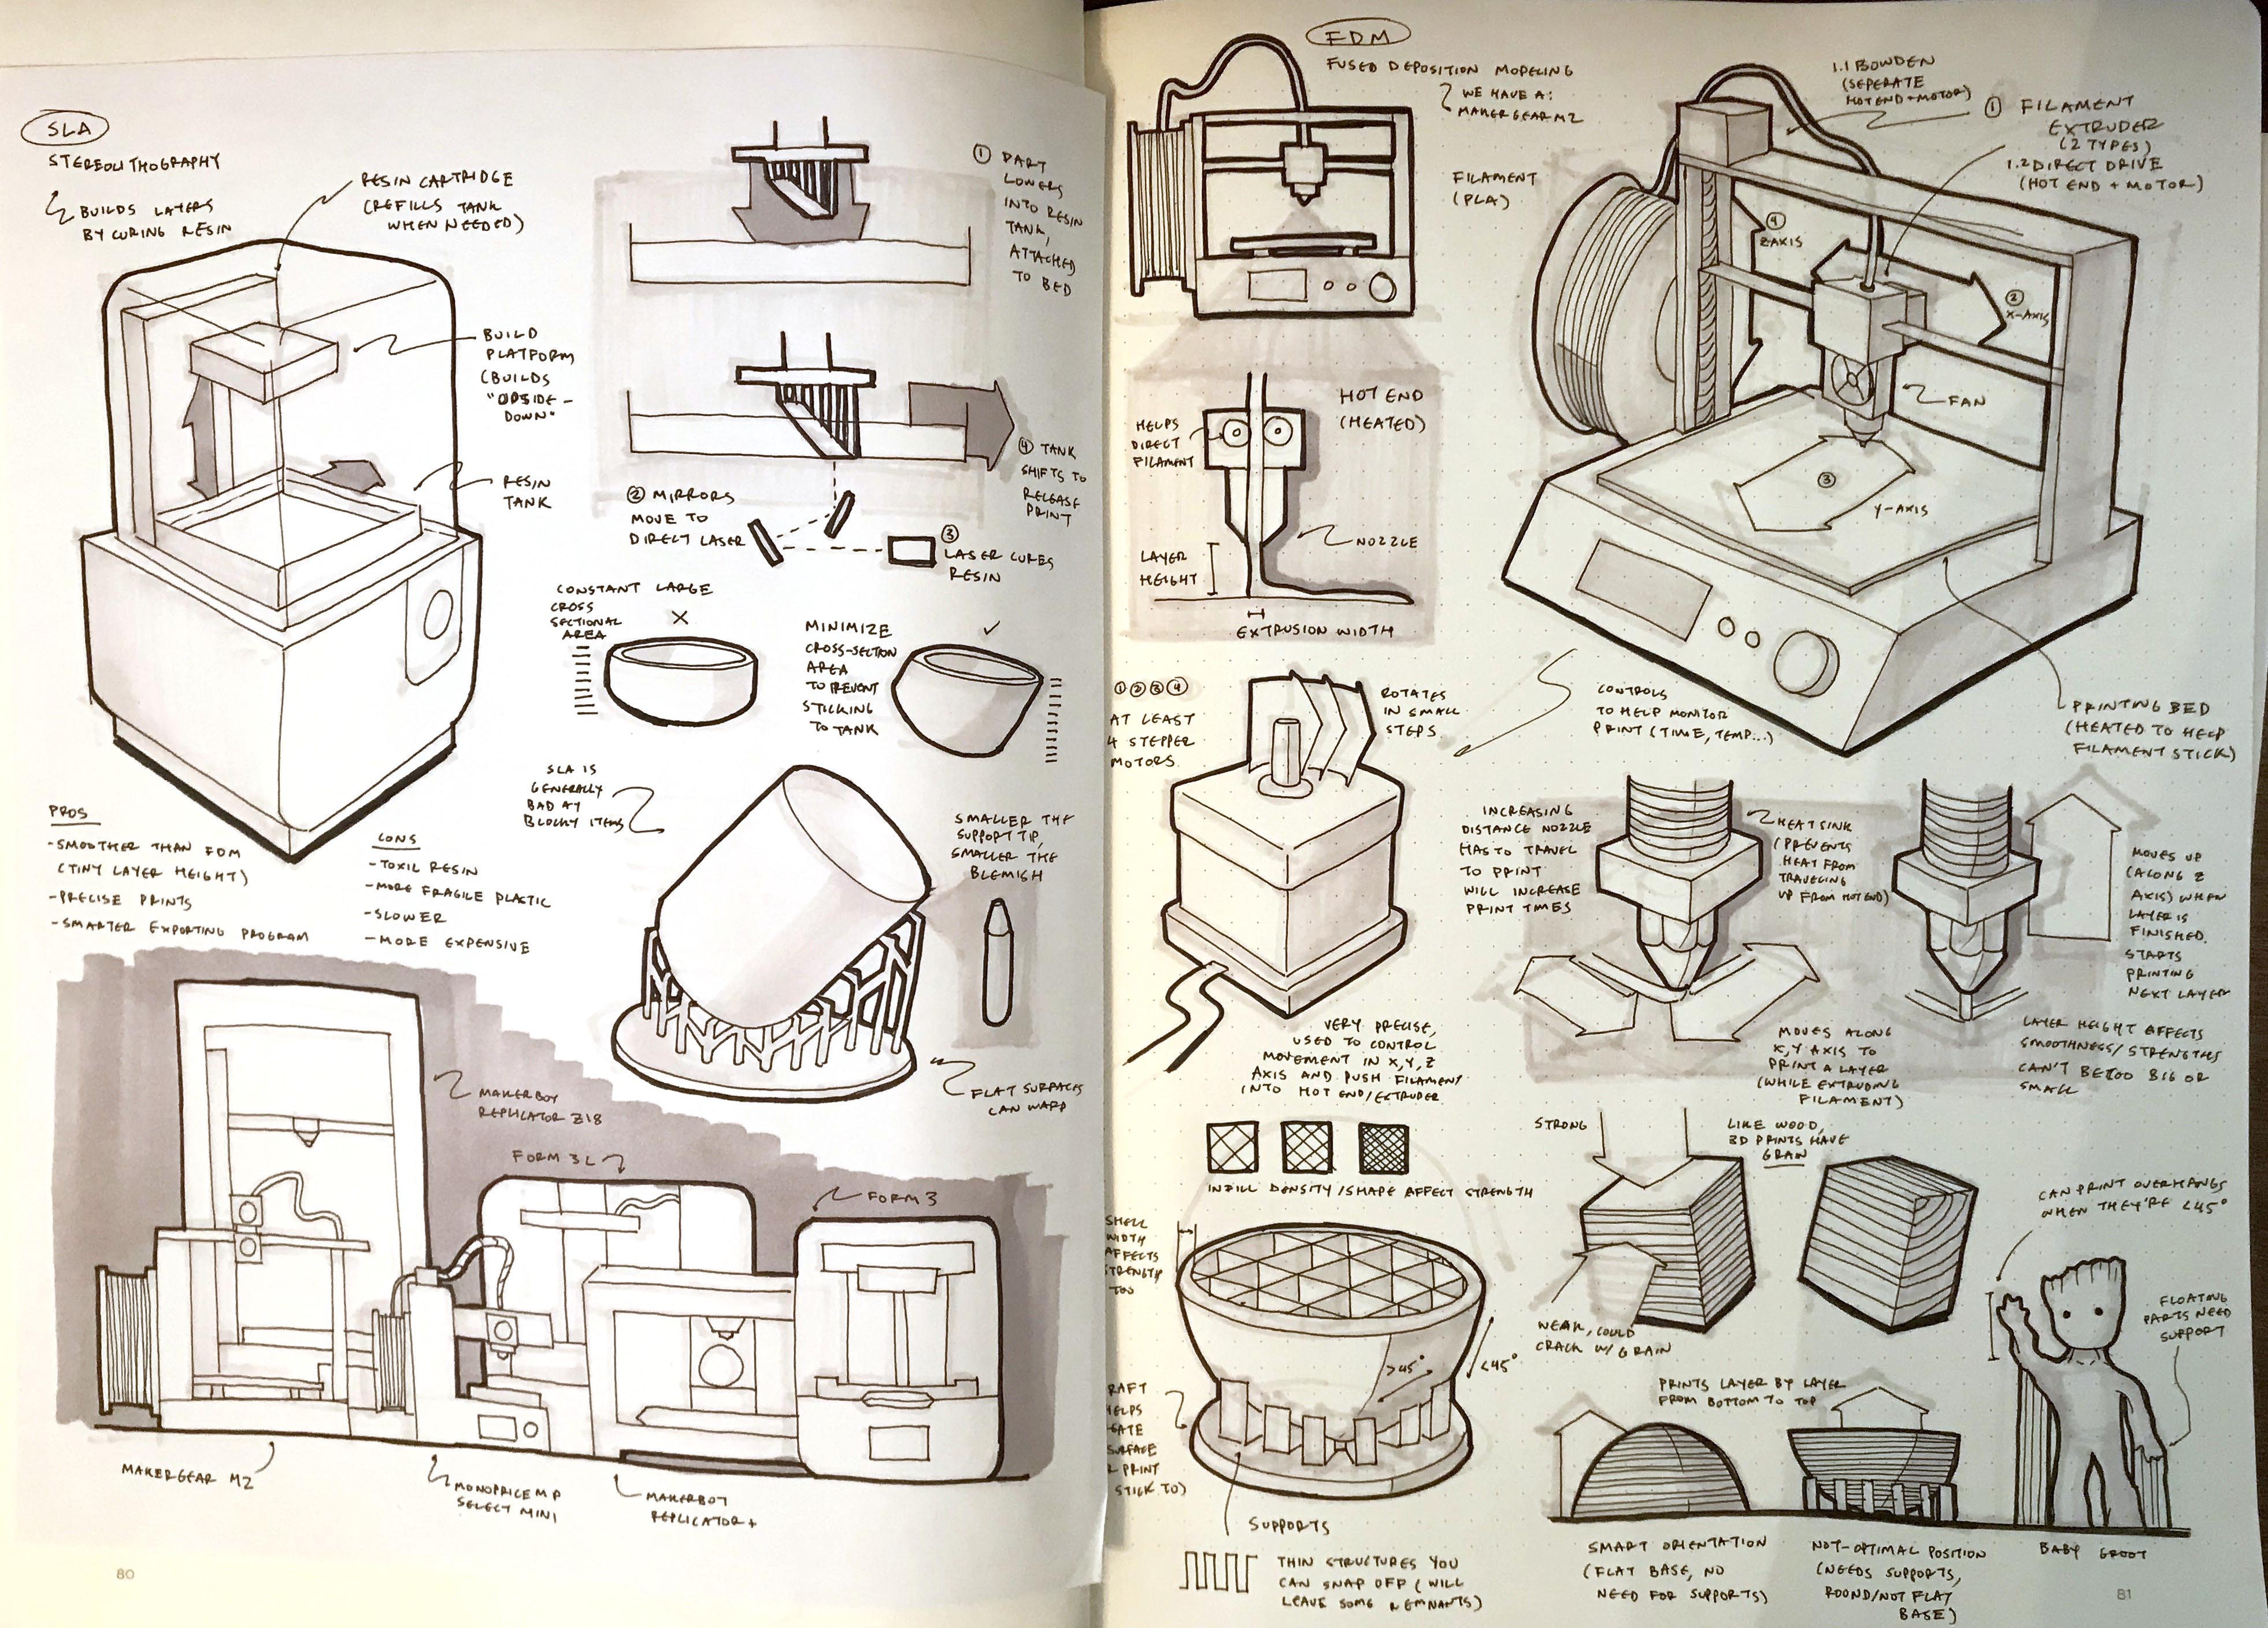 SLA
STEREOLITHOGRAPHY
BUILDS LAYERS
BY CURING RESIN
RESIN CARTRIDGE
(REFILLS TANK
WHEN NEEDED)
BUILD
PLATFORM
(BUILDS
"UPSIDE-
DOWN"
RESIN
TANK
① PART
LOWERS
INTO RESIN
TANK,
ATTACHED
TO BED
④ TANK
SHIFTS TO
RELEASE
PRINT
② MIRRORS
MOVE TO
DIRECT LASER
③
LASER CURES
RESIN
CONSTANT LARGE
CROSS
SECTIONAL
AREA
MINIMIZE
CROSS-SECTION
AREA
TO PREVENT
STICKING
TO TANK
SLA IS
GENERALLY
BAD AT
BLOCKY ITEMS
SMALLER THE
SUPPORT TIP,
SMALLER THE
BLEMISH
FLAT SURFACES
CAN WARP
PROS
-SMOOTHER THAN FDM
(TINY LAYER HEIGHT)
-PRECISE PRINTS
-SMARTER EXPORTING PROGRAM
CONS
-TOXIC RESIN
-MORE FRAGILE PLASTIC
-SLOWER
-MORE EXPENSIVE
MAKERBOT
REPLICATOR Z18
FORM 3L
FORM 3
MAKERGEAR M2
MONOPRICE MP
SELECT MINI
MAKERBOT
REPLICATOR+
80
FDM
FUSED DEPOSITION MODELING
WE HAVE A:
MAKERGEAR M2
FILAMENT
(PLA)
1.1 BOWDEN
(SEPERATE
HOT END + MOTOR)
① FILAMENT
EXTRUDER
(2 TYPES)
1.2 DIRECT DRIVE
(HOT END + MOTOR)
④
Z AXIS
②
X-AXIS
FAN
③
Y-AXIS
HOT END
(HEATED)
HELPS
DIRECT
FILAMENT
NOZZLE
LAYER
HEIGHT
EXTRUSION WIDTH
CONTROLS
TO HELP MONITOR
PRINT (TIME, TEMP...)
PRINTING BED
(HEATED TO HELP
FILAMENT STICK)
①②③④
AT LEAST
4 STEPPER
MOTORS
ROTATES
IN SMALL
STEPS
VERY PRECISE,
USED TO CONTROL
MOVEMENT IN X,Y,Z
AXIS AND PUSH FILAMENT
INTO HOT END/EXTRUDER
INCREASING
DISTANCE NOZZLE
HAS TO TRAVEL
TO PRINT
WILL INCREASE
PRINT TIMES
HEAT SINK
(PREVENTS
HEAT FROM
TRAVELING
UP FROM HOT END)
MOVES ALONG
X,Y AXIS TO
PRINT A LAYER
(WHILE EXTRUDING
FILAMENT)
MOVES UP
(ALONG Z
AXIS) WHEN
LAYER IS
FINISHED.
STARTS
PRINTING
NEXT LAYER
LAYER HEIGHT AFFECTS
SMOOTHNESS/STRENGTHS
CAN'T BE TOO BIG OR
SMALL
INFILL DENSITY/SHAPE AFFECT STRENGTH
SHELL
WIDTH
AFFECTS
STRENGTH
TOO
>45°
<45°
RAFT
HELPS
SURFACE
PRINT
STICK TO)
SUPPORTS
THIN STRUCTURES YOU
CAN SNAP OFF (WILL
LEAVE SOME REMNANTS)
STRONG
LIKE WOOD,
3D PRINTS HAVE
GRAIN
WEAK, COULD
CRACK W/ GRAIN
PRINTS LAYER BY LAYER
FROM BOTTOM TO TOP
CAN PRINT OVERHANGS
WHEN THEY'RE <45°
FLOATING
PARTS NEED
SUPPORT
SMART ORIENTATION
(FLAT BASE, NO
NEED FOR SUPPORTS)
NOT-OPTIMAL POSITION
(NEEDS SUPPORTS,
ROUND/NOT FLAT
BASE)
BABY GROOT
81